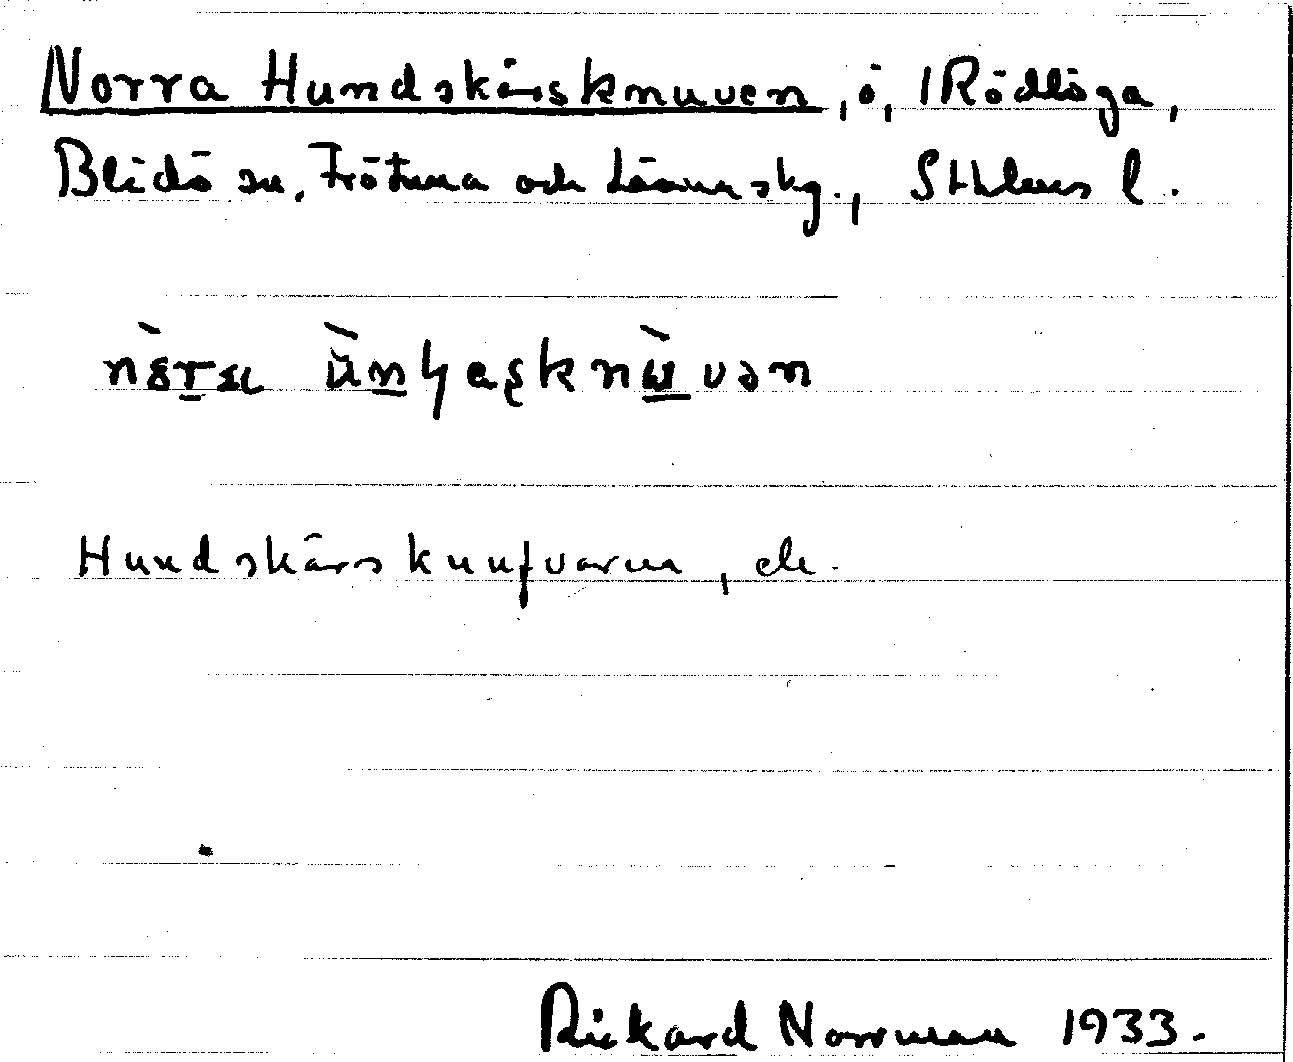 Norra Hundskärsknuven, ö, 1 Rödlöga,
Blidö sn, Frötuna och Länna skg., Sthlms l.
Hundskärsknufvarna, ek.
Rickard Norrman 1933.